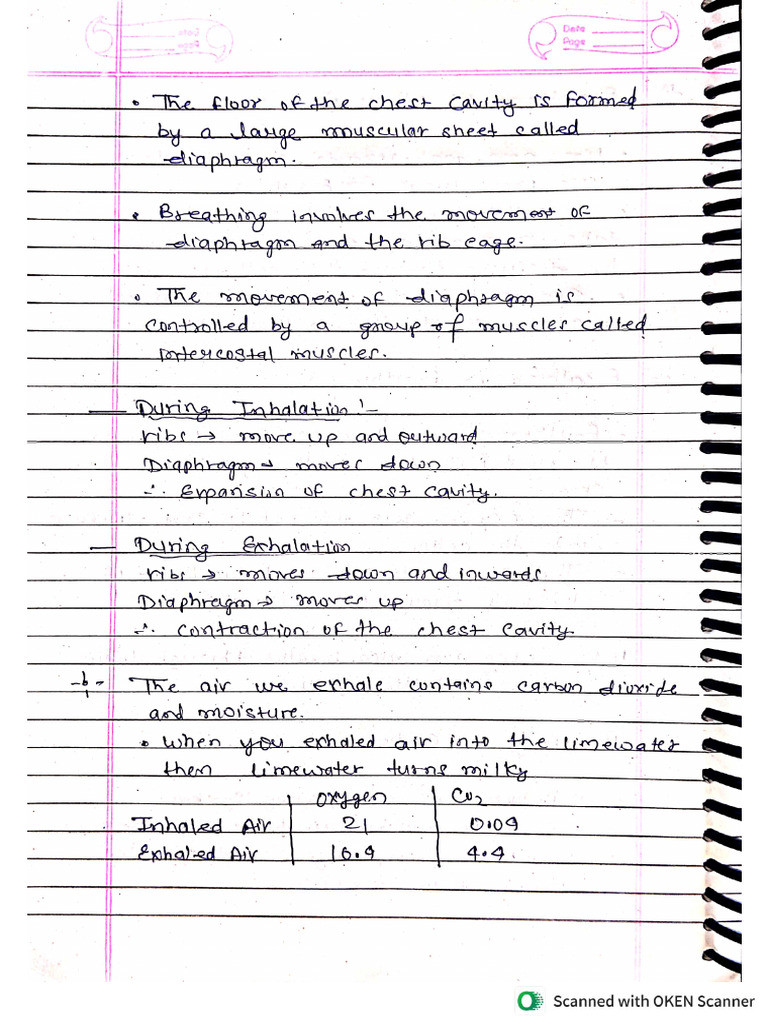 Date
Page
• The floor of the chest cavity is formed
by a large muscular sheet called
diaphragm.
• Breathing involves the movement of
diaphragm and the rib cage.
• The movement of diaphragm is
controlled by a group of muscles called
intercostal muscles.
— During Inhalation :-
ribs → move up and outward
Diaphragm → moves down
∴ Expansion of chest cavity.
— During Exhalation
ribs → moves down and inwards
Diaphragm → moves up
∴ contraction of the chest cavity.
The air we exhale contains carbon dioxide
and moisture.
• When you exhaled air into the limewater
then limewater turns milky
Oxygen CO2
Inhaled Air 21 0.04
Exhaled Air 16.4 4.4
Scanned with OKEN Scanner